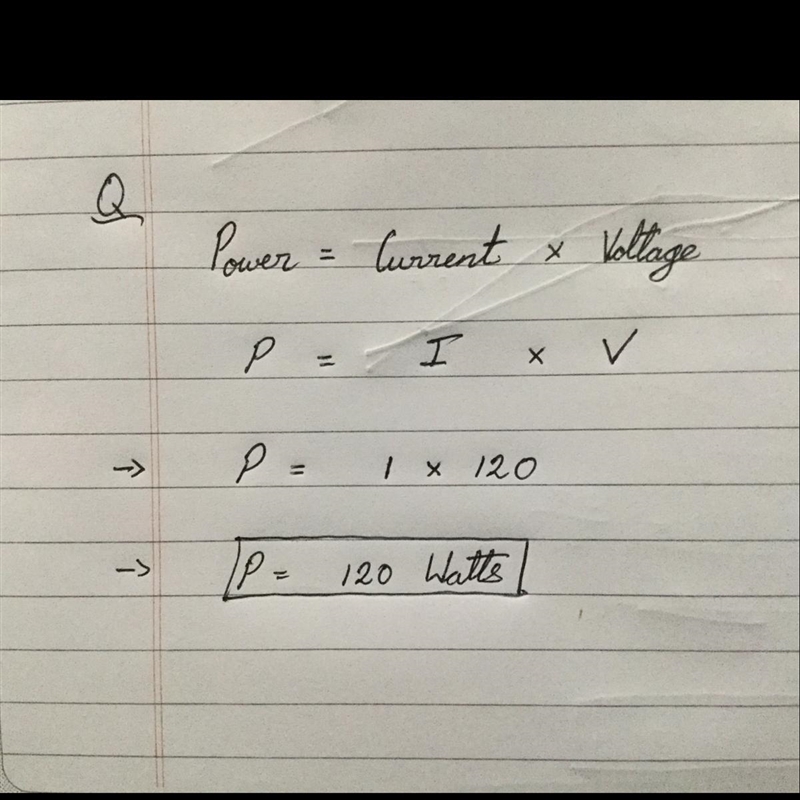 Q
Power = Current × Voltage
P = I × V
→ P = 1 × 120
→ P = 120 Watts